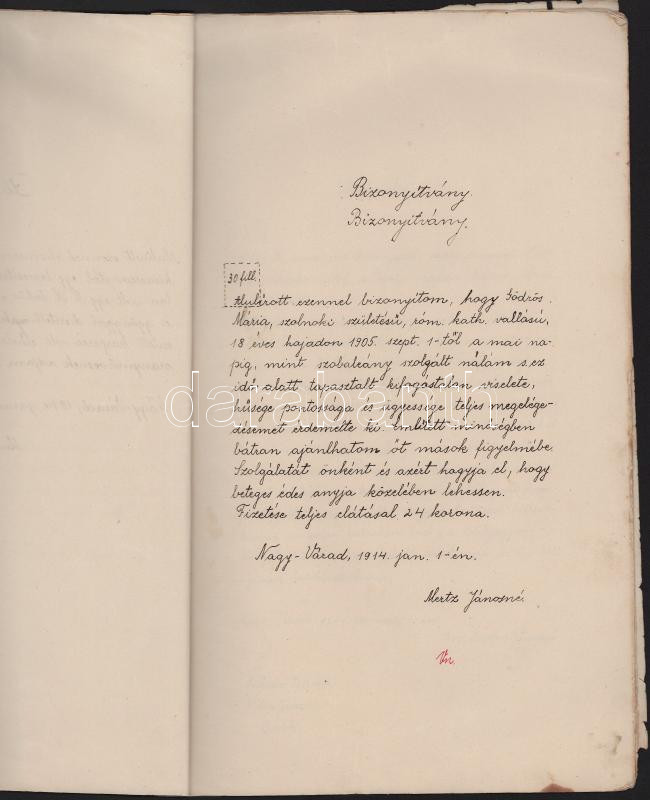 Bizonyítvány.
Bizonyítvány.
30 fill.
Alulírott ezennel bizonyítom, hogy Gödrös
Mária, szolnoki születésü, róm. kath. vallású,
18 éves hajadon 1905. szept. 1-től a mai na-
pig, mint szobaleány szolgált nálam s ez
idő alatt tapasztalt kifogástalan viselete,
hűsége pontossága és ügyessége teljes megelége-
désemet érdemelte ki. Említett minőségben
bátran ajánlhatom őt mások figyelmébe.
Szolgálatát önként és azért hagyja el, hogy
beteges édes anyja közelében lehessen.
Fizetése teljes elátásal 24 korona.
Nagy-Várad, 1914. jan. 1-én.
Mertz Jánosné.
darabanth